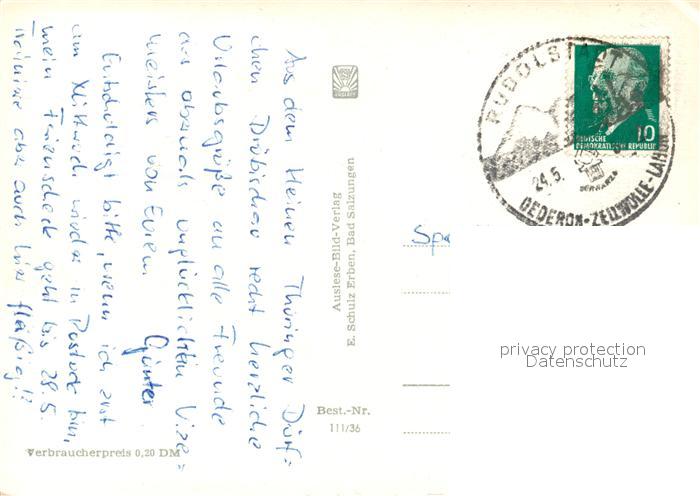 Aus dem kleinen Thüringer Dörf=
chen Dröbischau recht herzliche
Urlaubsgrüße an alle Freunde
aus abermals unglücklichem Vize=
meisters von Eurem Günter.
Entschuldigt bitte, wenn ich erst
am Mittwoch wieder in Rostock bin,
mein Ferienscheck geht bis 28.5.
Trainiere aber auch hier fleißig!!
Verbraucherpreis 0,20 DM
Auslese-Bild-Verlag
E. Schulz Erben, Bad Salzungen
Best.-Nr.
111/36
RUDOLSTADT
24.5.
DEDERON-ZELLWOLLE-LANON
DEUTSCHE
DEMOKRATISCHE REPUBLIK
10
privacy protection
Datenschutz